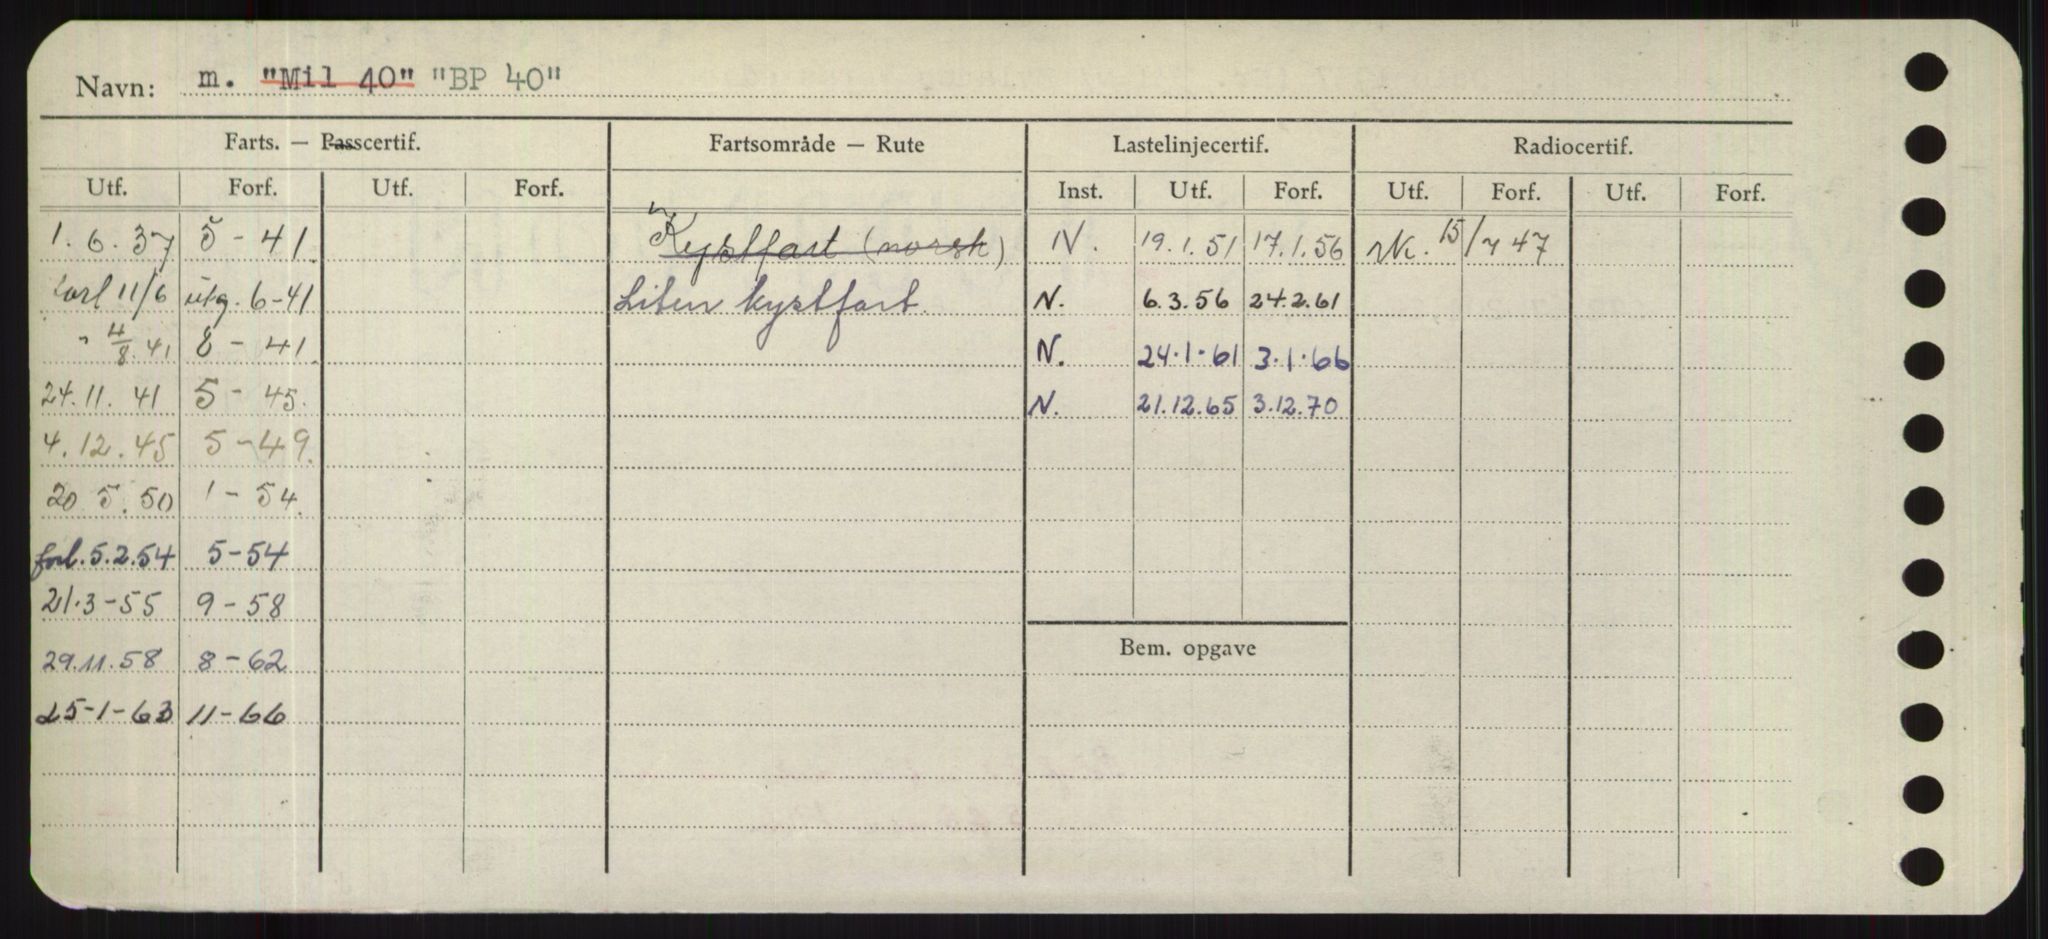 Navn: m. "Mil 40" "BP 40"
Farts. — Passcertif. Fartsområde — Rute Lastelinjecertif. Radiocertif.
Utf. Forf. Utf. Forf. Inst. Utf. Forf. Utf. Forf. Utf. Forf.
1.6.37 5-41 Kystfart (norsk) N. 19.1.51 17.1.56 15/7 47
11/6 utg. 6-41 Liten kystfart. N. 6.3.56 24.2.61
" 4/8.41 8-41 N. 24.1.61 3.1.66
24.11.41 5-45. N. 21.12.65 3.12.70
4.12.45 5-49.
20.5.50 1-54.
forl.5.2.54 5-54
21.3-55 9-58
Bem. opgave
29.11.58 8-62
25-1-63 11-66